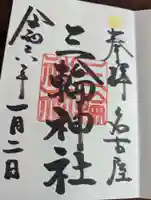 奉拝 名古屋
三輪神社
令和六年一月二日